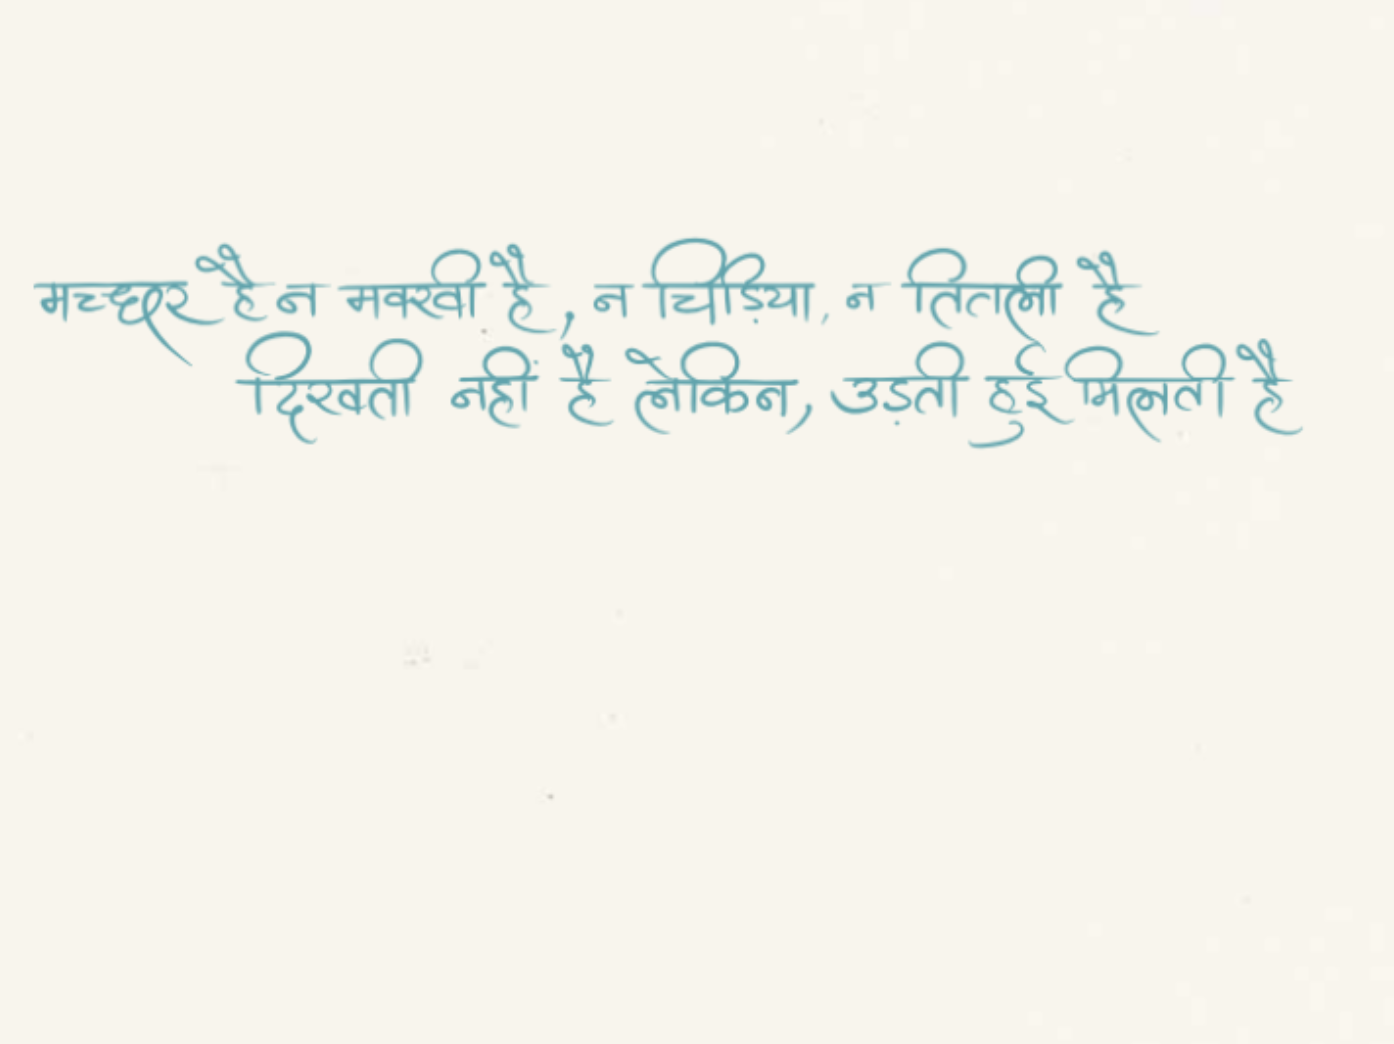 मच्छर है न मक्खी है, न चिड़िया, न तितली है
दिखती नहीं है लेकिन, उड़ती हुई मिलती है